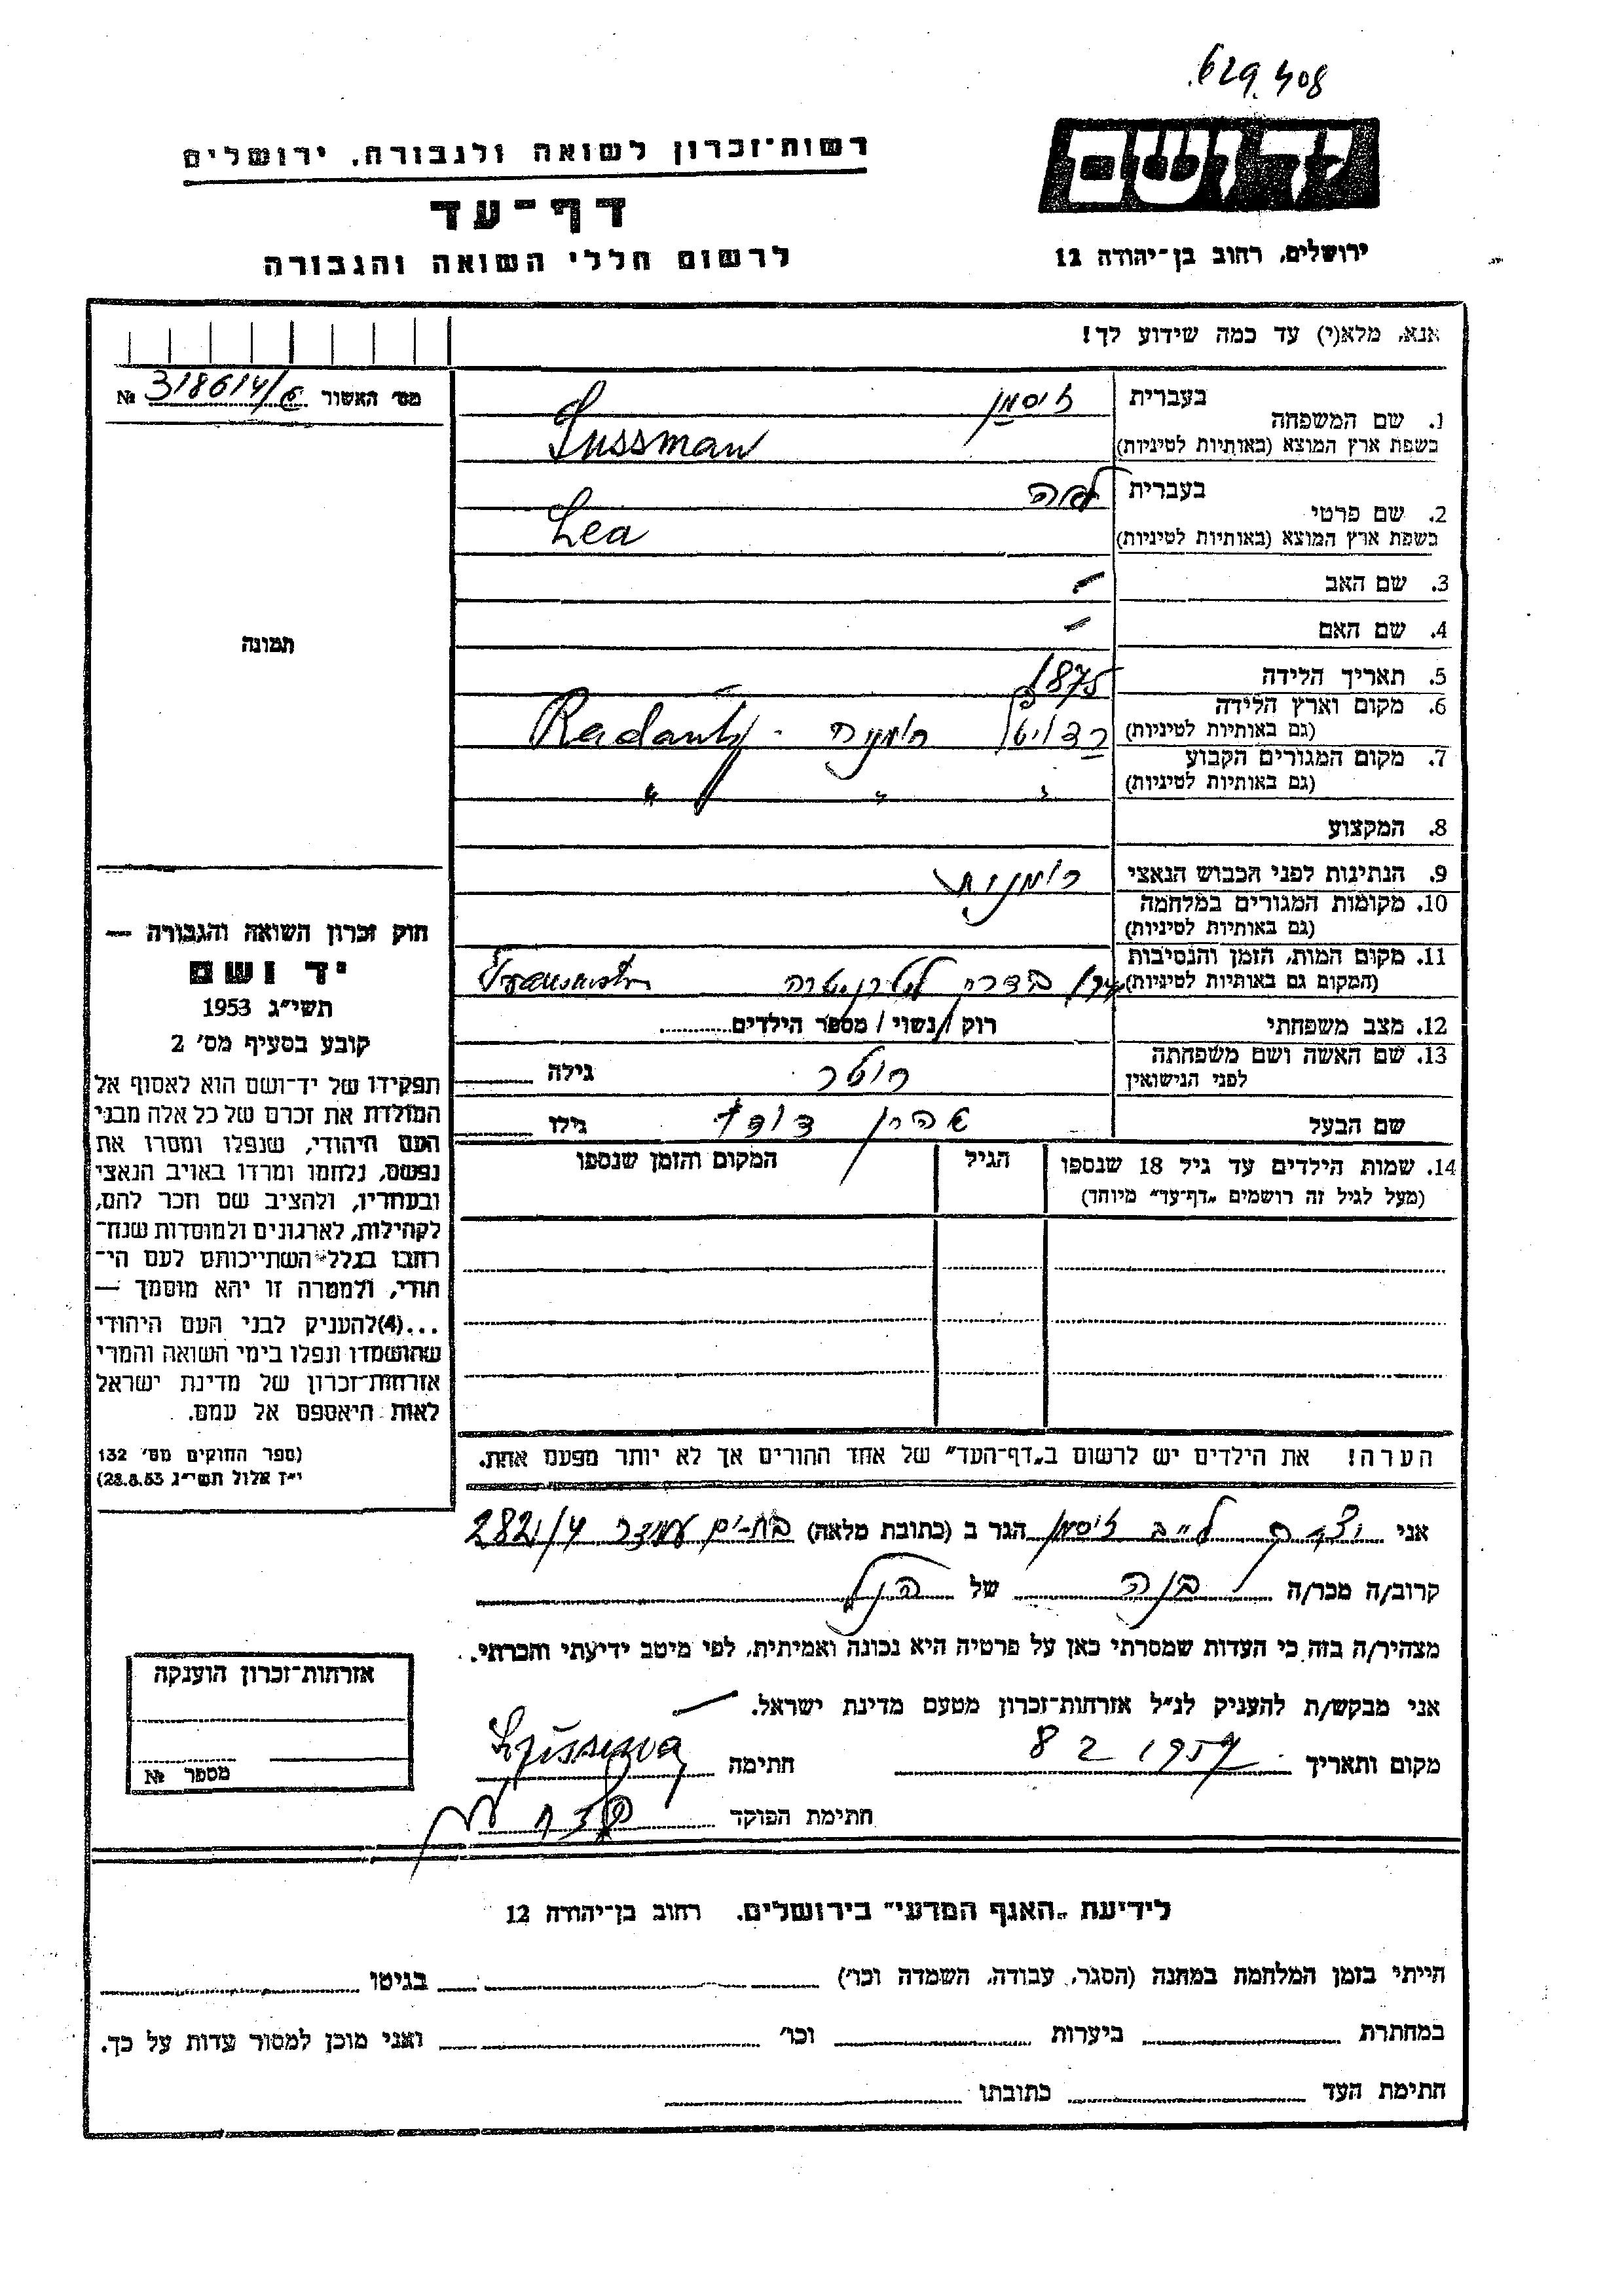 629.408
רשות־זכרון לשואה ולגבורה, ירושלים
יד ושם
דף־עד
לרשום חללי השואה והגבורה
ירושלים, רחוב בן־יהודה 12
אנא, מלא(י) עד כמה שידוע לך!
מס׳ האשור 318614/ №
1. שם המשפחה
בעברית זיסמן
בשפת ארץ המוצא (באותיות לטיניות) Sussman
2. שם פרטי
בעברית לאה
בשפת ארץ המוצא (באותיות לטיניות) Lea
3. שם האב -
4. שם האם -
תמונה
5. תאריך הלידה 1875
6. מקום וארץ הלידה
(גם באותיות לטיניות) רדויץ רומניה - Radautz
7. מקום המגורים הקבוע
(גם באותיות לטיניות) " " "
8. המקצוע
9. הנתינות לפני הכבוש הנאצי רומנית
10. מקומות המגורים במלחמה
(גם באותיות לטיניות)
11. מקום המות, הזמן והנסיבות
(המקום גם באותיות לטיניות) בדרך לטרנסניסטריה
12. מצב משפחתי רוק / נשוי / מספר הילדים
13. שם האשה ושם משפחתה
לפני הנישואין גילה
שם הבעל דוד גילו
14. שמות הילדים עד גיל 18 שנספו הגיל המקום והזמן שנספו
(מעל לגיל זה רושמים „דף־עד״ מיוחד)
חוק זכרון השואה והגבורה —
יד ושם
תשי״ג 1953
קובע בסעיף מס׳ 2
תפקידו של יד־ושם הוא לאסוף אל
המולדת את זכרם של כל אלה מבני
העם היהודי, שנפלו ומסרו את
נפשם, נלחמו ומרדו באויב הנאצי
ובעוזריו, ולהציב שם וזכר להם,
לקהילות, לארגונים ולמוסדות שנח־
רבו בגלל השתייכותם לעם הי־
הודי, ולמטרה זו יהא מוסמך —
...(4)להעניק לבני העם היהודי
שהושמדו ונפלו בימי השואה והמרי
אזרחות־זכרון של מדינת ישראל
לאות היאספם אל עמם.
(ספר החוקים מס׳ 132
י״ז אלול תשי״ג 28.8.53)
הערה! את הילדים יש לרשום ב„דף־העד״ של אחד ההורים אך לא יותר מפעם אחת.
אני לייב זיסמן הגר ב (כתובת מלאה) בת-ים עמידר 282/4
קרוב/ה מכר/ה בנה של הנ״ל
מצהיר/ה בזה כי העדות שמסרתי כאן על פרטיה היא נכונה ואמיתית, לפי מיטב ידיעתי והכרתי.
אני מבקש/ת להעניק לנ״ל אזרחות־זכרון מטעם מדינת ישראל.
מקום ותאריך 8 2 1957 חתימה
חתימת הפוקד
אזרחות־זכרון הוענקה
מספר №
לידיעת „האגף המדעי״ בירושלים. רחוב בן־יהודה 12
הייתי בזמן המלחמה במחנה (הסגר, עבודה, השמדה וכו׳) בגיטו
במחתרת ביערות וכו׳ ואני מוכן למסור עדות על כך.
חתימת העד כתובתו